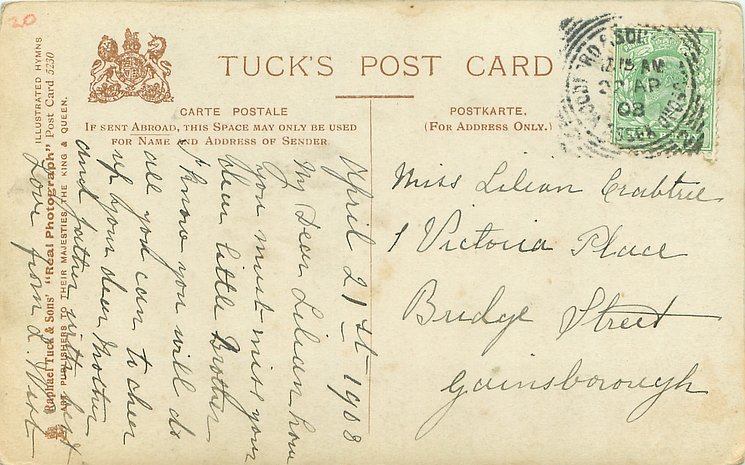 20
TUCK'S POST CARD
CARTE POSTALE
IF SENT ABROAD, THIS SPACE MAY ONLY BE USED
FOR NAME AND ADDRESS OF SENDER
POSTKARTE.
(FOR ADDRESS ONLY.)
ILLUSTRATED HYMNS.
Raphael Tuck & Sons' "Real Photograph" Post Card 5230
ART PUBLISHERS TO THEIR MAJESTIES THE KING & QUEEN.
April 21st 1908
My Dear Lilian how
you must miss your
dear little Brother
I know you will do
all you can to cheer
up your dear Mother
and father with best
Love from L. West
Miss Lilian Crabtree
1 Victoria Place
Bridge Street
Gainsborough
15 AM
AP
08